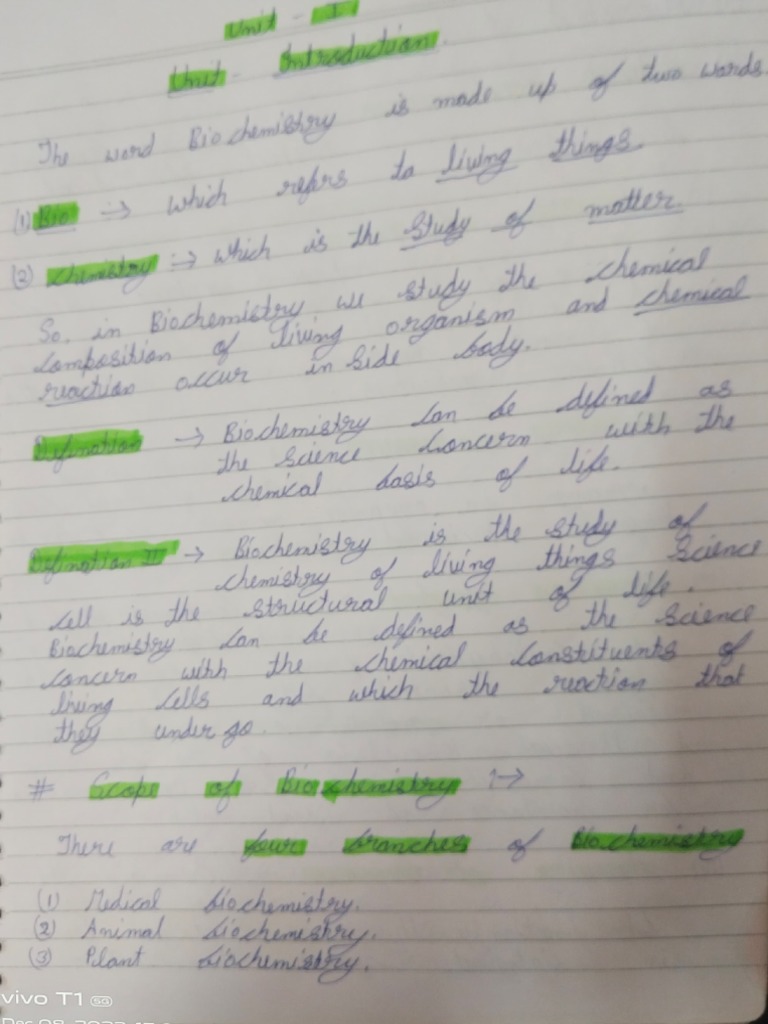 Unit - I
Unit - Introduction.
The word Biochemistry is made up of two words.
(1) Bio :-> which refers to living things.
(2) chemistry :-> which is the study of matter.
So. in Biochemistry we study the chemical
composition of living organism and chemical
reaction occur in side body.
Defination -> Biochemistry can be defined as
the science concern with the
chemical basis of life.
Defination II -> Biochemistry is the study of
chemistry of living things science
cell is the structural unit of life.
Biochemistry can be defined as the science
concern with the chemical constituents of
living cells and which the reaction that
they under go.
# Scope of Biochemistry :->
There are four branches of Biochemistry
(1) Medical biochemistry.
(2) Animal biochemistry.
(3) Plant biochemistry.
vivo T1 5G